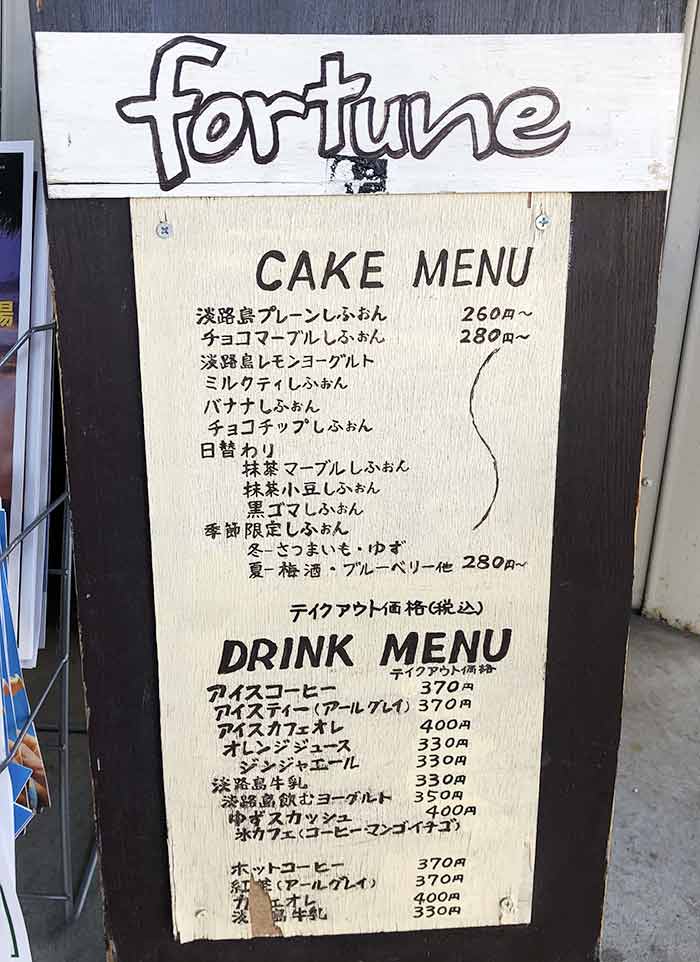 fortune
CAKE MENU
淡路島プレーンしふぉん 260円〜
チョコマーブルしふぉん 280円〜
淡路島レモンヨーグルト
ミルクティしふぉん
バナナしふぉん
チョコチップしふぉん
日替わり
抹茶マーブルしふぉん
抹茶小豆しふぉん
黒ゴマしふぉん
季節限定しふぉん
冬-さつまいも・ゆず
夏-梅酒・ブルーベリー他 280円〜
テイクアウト価格(税込)
DRINK MENU
テイクアウト価格
アイスコーヒー 370円
アイスティー(アールグレイ) 370円
アイスカフェオレ 400円
オレンジジュース 330円
ジンジャエール 330円
淡路島牛乳 330円
淡路島飲むヨーグルト 350円
ゆずスカッシュ 400円
氷カフェ(コーヒー・マンゴイチゴ)
ホットコーヒー 370円
紅茶(アールグレイ) 370円
カフェオレ 400円
淡路島牛乳 330円